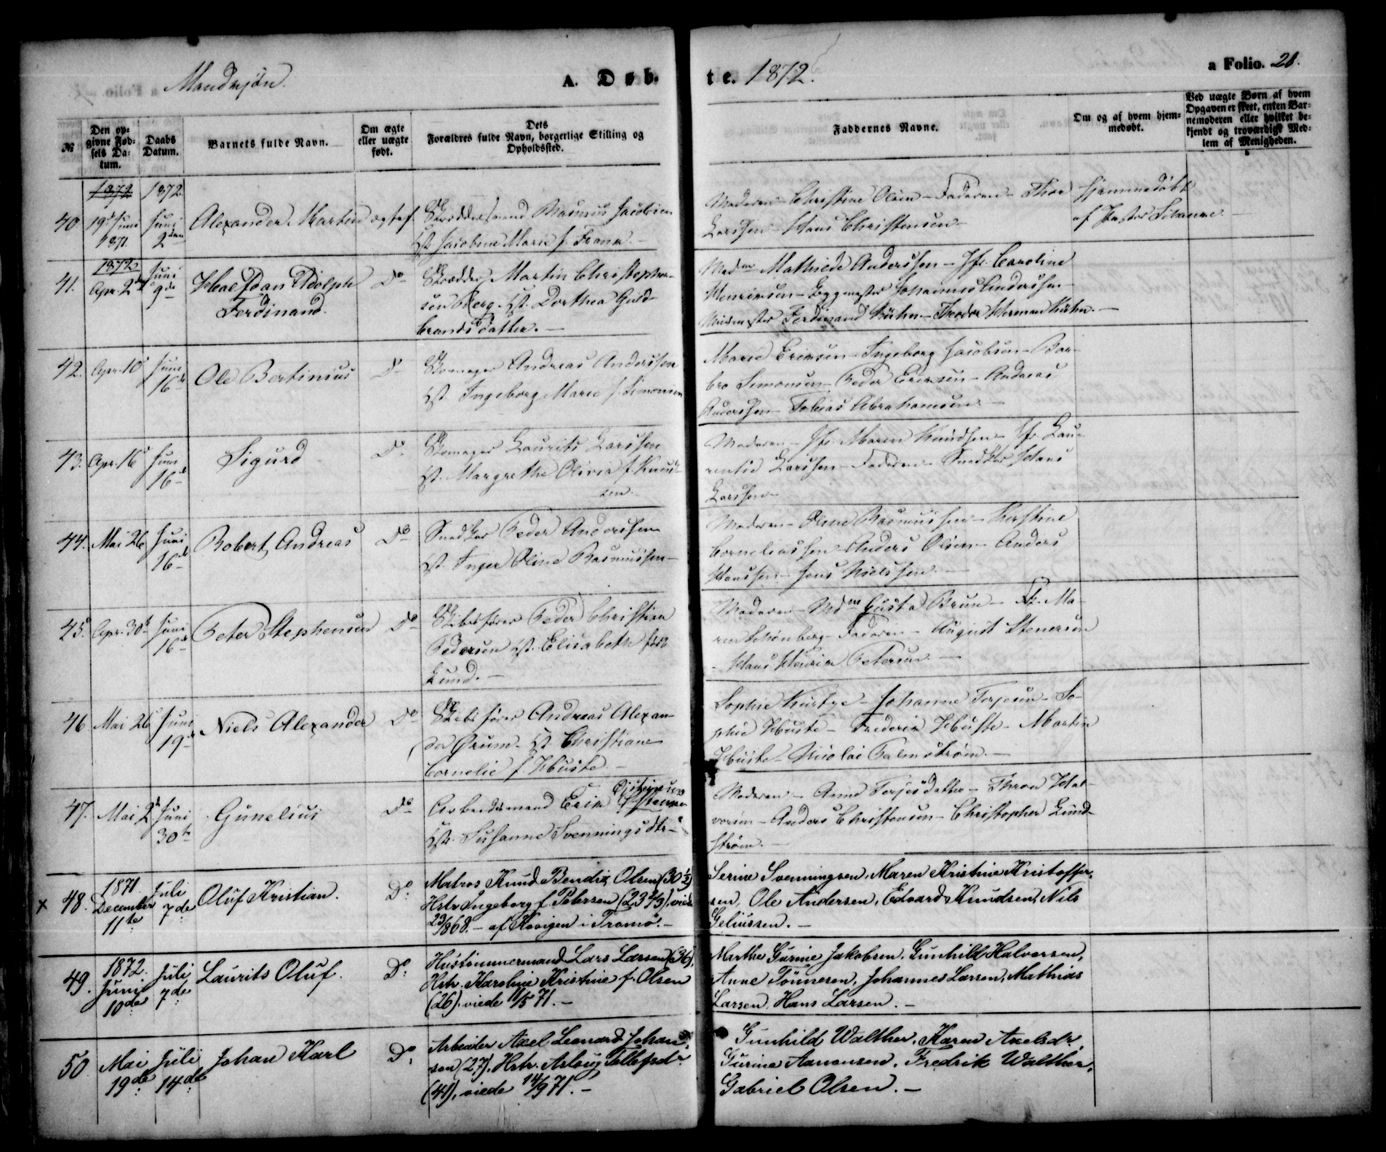 Mandkjøn.
A. Døbte. 1872.
a Folio. 28.
№
Den opgivne Fødsels Datum.
Daabs Datum.
Barnets fulde Navn.
Om ægte eller uægte født.
Dets Forældres fulde Navn, borgerlige Stilling og Opholdssted.
Faddernes Navne.
Om og af hvem hjemmedøbt.
Ved uægte Børn af hvem Opgaven er skeet, enten Barnemoderen eller hvilket bekjendt og troværdigt Medlem af Menigheden.
1872 1872
40 19d Juni 1871 Juni 2den Alexander Martin ægtef. Skræddersvend Rasmus Jacobsen
Hst Jacobine Marie f. Frank
Moderen Christine Olsen Faderen Thor
Larssen Hans Christensen
Hjemmedøbt
af Pastor
41. 1872 Apr. 2d Juni 9de Haldan Adolph Ferdinand. Do Skrædder Martin Christophersen Berg Hst Dorthea Guldbrandsdatter.
Madm Mathilde Anderssen Jfr. Caroline
Henriksen Byggmester Johannes Anderssen
Ferdinand Kühn Peder Herman Kühn.
42. Apr. 10d Juni 16de Ole Bertinius Do Skomager Andreas Anderssen
Hst Ingeborg Marie f. Simonsen
Marie Eriksen Ingeborg Jacobsen Barbro Simonsen Peder Eriksen Andreas
Anderssen Tobias Abrahamsen
43. Apr. 16d Juni 16de Sigurd Do Skomager Laurits Larssen
Hst. Margrethe Olivia f. Knudsen
Moderen Jfr. Maren Knudsen Jfr. Laurentie Larssen Faderen Snedker Hans
Larssen
44. Mai 26 Juni 16de Robert Andreas Do Snedker Peder Anderssen
Hst. Inger Oline Rasmussen
Moderen Oline Rasmussen Kirstine
Corneliussen Anders Olsen Anders
Hanssen Jens Nielssen.
45. Apr. 30d Juni 16de Peter Stephensen Do Skibsfører Peder Christian
Pedersen Hst. Elisabeth
Lund.
Moderen Mdm Gusta Brun Fr. Maren Schönberg Faderen August Stenersen
Hans Henrik Petersen.
46 Mai 26 Juni 19de Niels Alexander Do Skibsfører Andreas Alexander Ørum. Hst. Christiane
Cornelie f. Huste
Sophie Johanne Torjesen Sophie Huste Frederik Huste Martin
Huste Nicolai Palmstrøm.
47. Mai 2d Juni 30te Gunelius Do Arbeidsmand Erik
Hst. Susanne Svenningsdtr.
Moderen Anna Torjesdatter Thron Halvorsen Anders Christensen Christopher Lundstrøm.
x 48. 1871. December 11te Juli 7de Oluf Kristian. Do Matros Knud Bendix Olsen (30½)
Hstr. Ingeborg f. Petersen (23¾), viede
/68. af Kovigen i Tromø.
Serine Svenningsen, Maren Kristine Kristoffersen, Ole Andersen, Edvard Knudsen, Nils
Geliussen.
49. 1872. Juni 10de Juli 7de Laurits Oluf. Do Hustømmermand Lars Larsen (36),
Hstr. Karoline Kristine f. Olsen
(26), viede 11/5 71.
Marthe Gurine Jakobsen, Gunhild Halvorsen,
Anne Tønnesen, Johannes Larsen, Mathias
Larsen, Hans Larsen.
50 Mai 19de Juli 14de Johan Karl Do Arbeider Axel Leonard Johansen (27), Hstr. Aslaug Tellefsdr.
(41), viede 14/9 71.
Gunhild Walther, Karen Axelsdr,
Gurine Aanonsen, Fredrik Walther,
Gabriel Olsen.